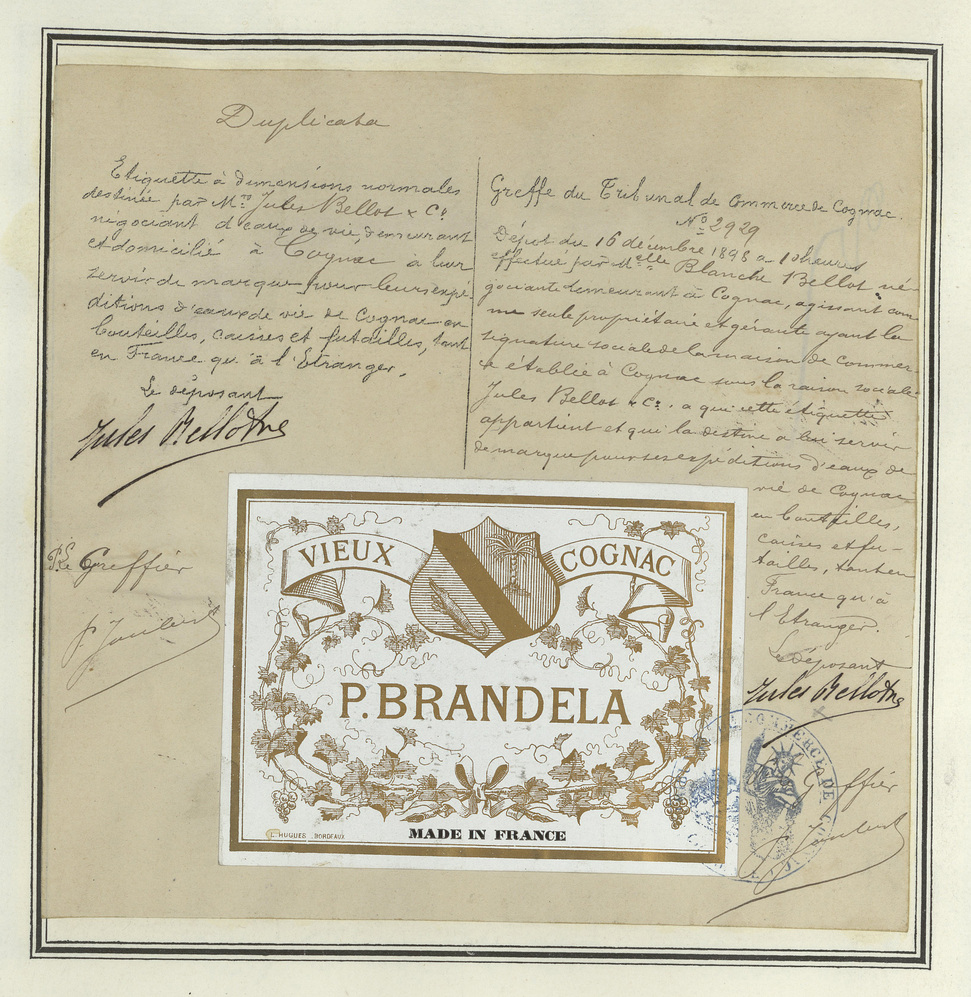 Duplicata
Etiquette à dimensions normales
destinée par Mrs Jules Bellot & Co.
négociant d'eaux de vie, demeurant
et domicilié à Cognac à leur
servir de marque pour leurs expé-
ditions d'eaux de vie de Cognac en
bouteilles, caisses et futailles, tant
en France qu'à l'Etranger.
Le déposant
Jules Bellot &
Le Greffier
Greffe du Tribunal de Commerce de Cognac.
No 2929
Dépot du 16 décembre 1898 a 10 heures
effectué par Melle Blanche Bellot né-
gociante demeurant à Cognac, agissant com
me seule propriétaire et gérante ayant la
signature sociale de la maison de commer-
ce établie à Cognac sous la raison sociale
Jules Bellot & Co. a qui cette étiquette
appartient et qui la destine a lui servir
de marque pour ses expéditions d'eaux de
vie de Cognac
en bouteilles,
caisses et fu-
tailles, tant en
France qu'à
l'Etranger.
Le déposant
Jules Bellot &
Greffier
VIEUX COGNAC
P. BRANDELA
HUGUES BORDEAUX
MADE IN FRANCE
COMMERCE DE